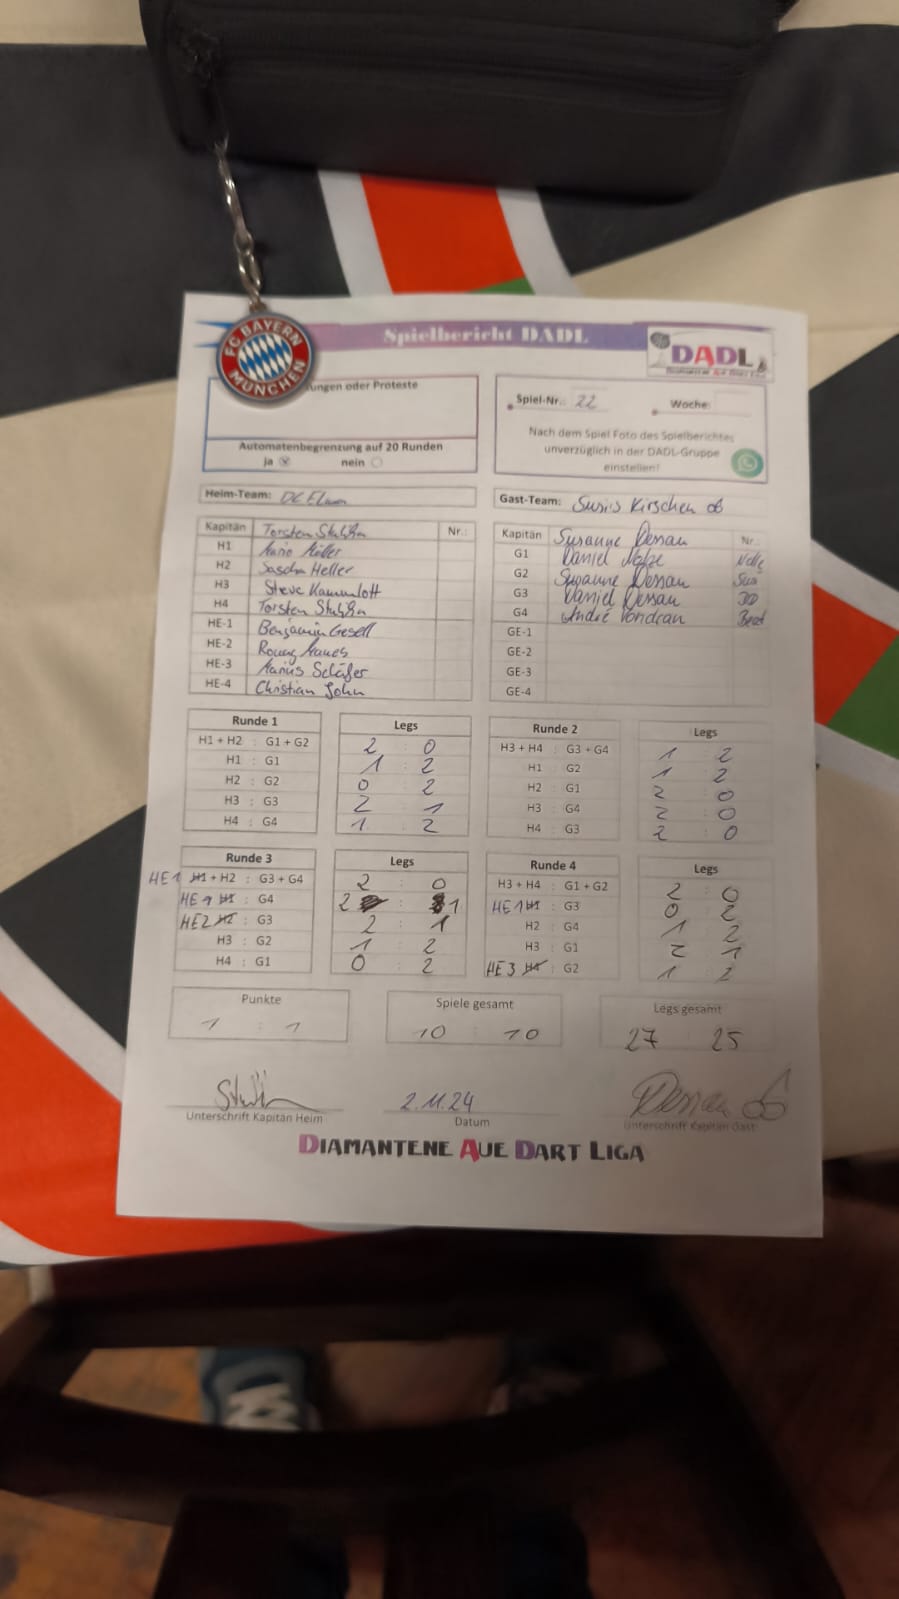 FC BAYERN MÜNCHEN
Spielbericht DADL
DADL
DIAMANTENE AUE DART LIGA
ungen oder Proteste
Automatenbegrenzung auf 20 Runden
ja nein
Spiel-Nr.: 22 Woche:
Nach dem Spiel Foto des Spielberichtes
unverzüglich in der DADL-Gruppe
einstellen!
Heim-Team: DC
Gast-Team: Susis Kirschen
Kapitän Torsten Nr.:
H1 Mario Müller
H2 Sascha Heller
H3 Steve Kammlott
H4 Torsten
HE-1 Benjamin Gesell
HE-2 Ronny
HE-3 Marius Schäfer
HE-4 Christian John
Kapitän Susanne Dessau Nr.:
G1 Daniel
G2 Susanne Dessau
G3 Daniel Dessau
G4 André Vondran
GE-1
GE-2
GE-3
GE-4
Runde 1 Legs
H1 + H2 : G1 + G2 2 : 0
H1 : G1 1 : 2
H2 : G2 0 : 2
H3 : G3 2 : 1
H4 : G4 1 : 2
Runde 2 Legs
H3 + H4 : G3 + G4 1 : 2
H1 : G2 1 : 2
H2 : G1 2 : 0
H3 : G4 2 : 0
H4 : G3 2 : 0
Runde 3 Legs
HE1 H1 + H2 : G3 + G4 2 : 0
HE1 H1 : G4 2 : 1
HE2 H2 : G3 2 : 1
H3 : G2 1 : 2
H4 : G1 0 : 2
Runde 4 Legs
H3 + H4 : G1 + G2 2 : 0
HE1 H1 : G3 0 : 2
H2 : G4 1 : 2
H3 : G1 2 : 1
HE3 H4 : G2 1 : 2
Punkte
1 : 1
Spiele gesamt
10 : 10
Legs gesamt
27 25
Unterschrift Kapitän Heim
2.11.24
Datum
Dessau
Unterschrift Kapitän Gast
DIAMANTENE AUE DART LIGA